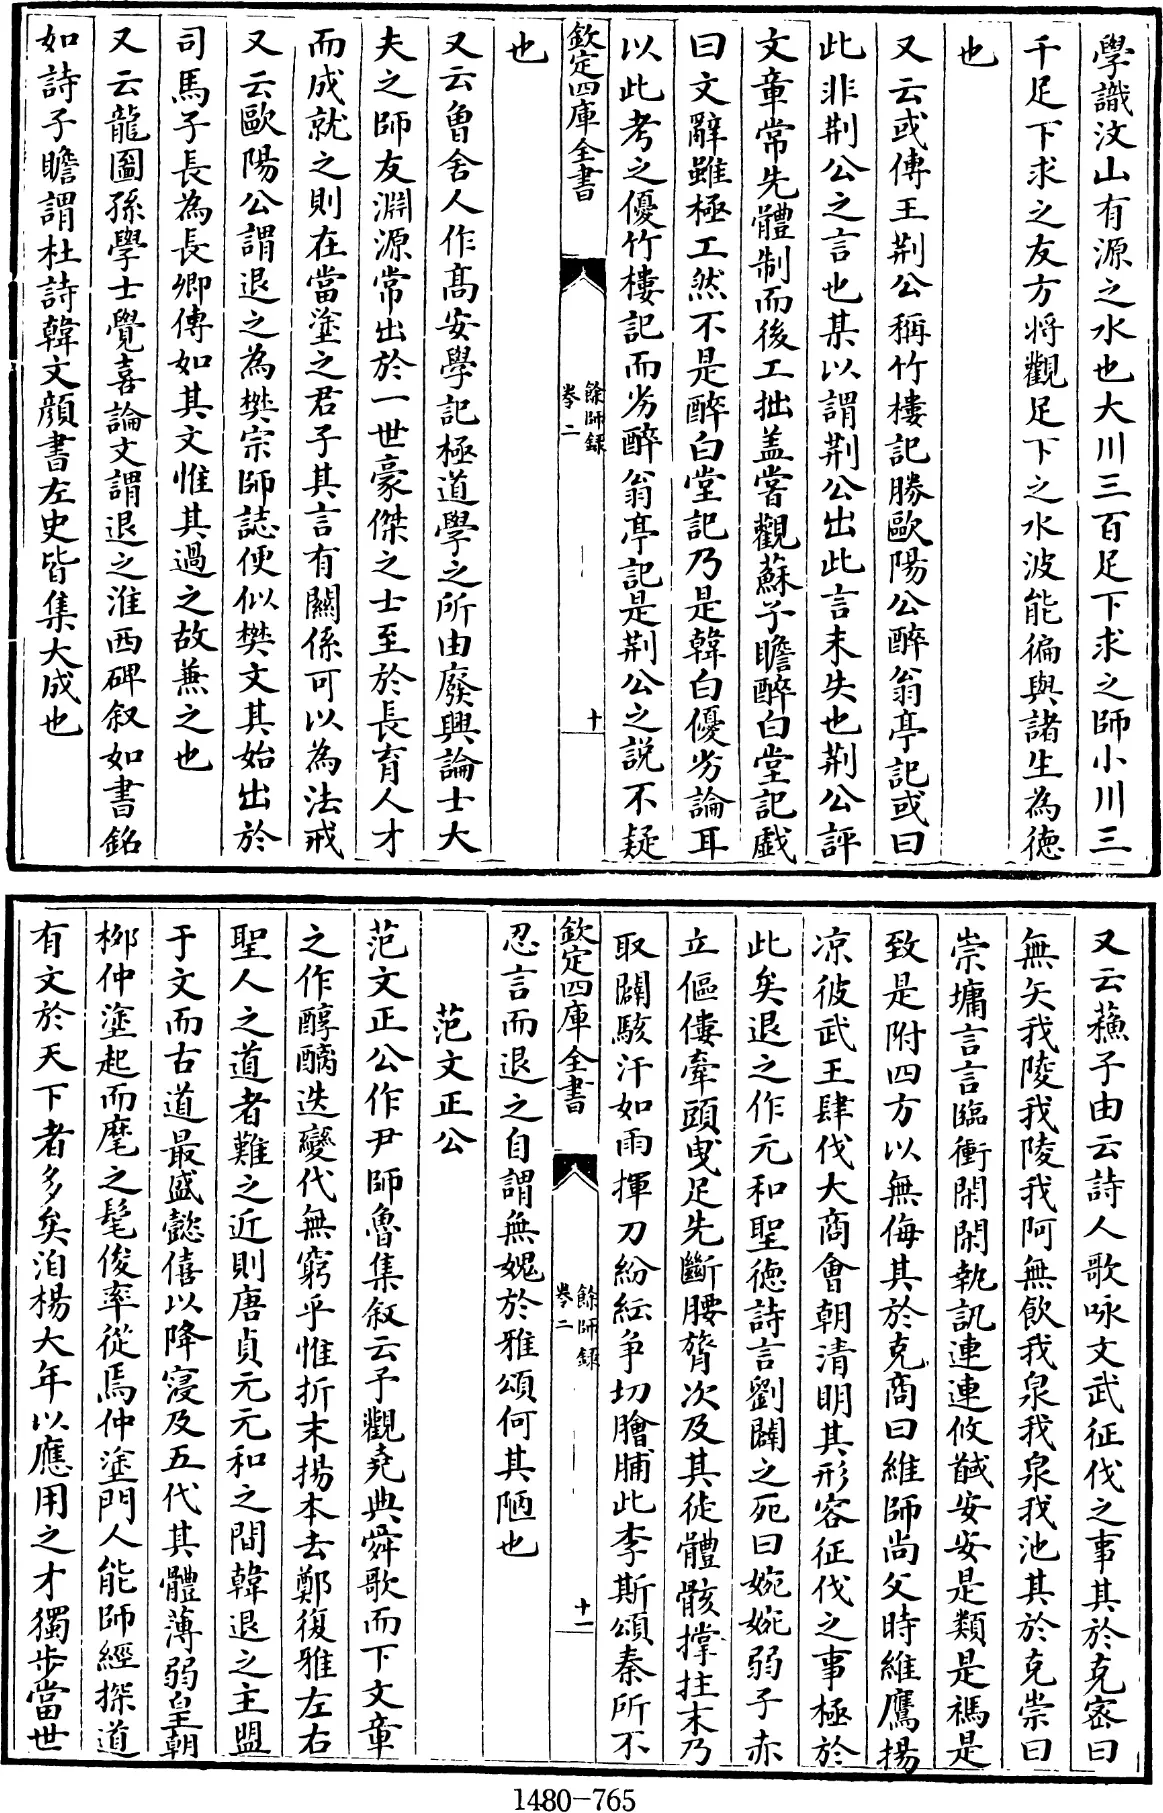 學識汶山有源之水也大川三百足下求之師小川三
千足下求之友方將觀足下之水波能徧與諸生為德
也
又云或傳王荆公稱竹樓記勝歐陽公醉翁亭記或曰
此非荆公之言也某以謂荆公出此言未失也荆公評
文章常先體制而後工拙盖嘗觀蘇子瞻醉白堂記戲
曰文辭雖極工然不是醉白堂記乃是韓白優劣論耳
以此考之優竹樓記而劣醉翁亭記是荆公之說不疑
欽定四庫全書
餘師録
卷二
十
也
又云曾舍人作髙安學記極道學之所由廢興論士大
夫之師友淵源常出於一世豪傑之士至於長育人才
而成就之則在當塗之君子其言有關係可以為法戒
又云歐陽公謂退之為樊宗師誌便似樊文其始出於
司馬子長為長卿傳如其文惟其過之故兼之也
又云龍圖孫學士覺喜論文謂退之淮西碑叙如書銘
如詩子瞻謂杜詩韓文顔書左史皆集大成也
又云蘇子由云詩人歌咏文武征伐之事其於克密曰
無矢我陵我陵我阿無飲我泉我泉我池其於克崇曰
崇墉言言臨衝閑閑執訊連連攸馘安安是類是禡是
致是附四方以無侮其於克商曰維師尚父時維鷹揚
凉彼武王肆伐大商會朝清明其形容征伐之事極於
此矣退之作元和聖德詩言劉闢之死曰婉婉弱子赤
立傴僂牽頭曵足先斷腰膂次及其徒體骸撑拄末乃
取闢駭汗如雨揮刀紛紜争切膾脯此李斯頌秦所不
欽定四庫全書
餘師録
卷二
十一
忍言而退之自謂無媿於雅頌何其陋也
范文正公
范文正公作尹師魯集叙云予觀堯典舜歌而下文章
之作醇醨迭變代無窮乎惟折末揚本去鄭復雅左右
聖人之道者難之近則唐貞元元和之間韓退之主盟
于文而古道最盛懿僖以降寖及五代其體薄弱皇朝
栁仲塗起而麾之髦俊率從焉仲塗門人能師經探道
有文於天下者多矣洎楊大年以應用之才獨步當世
1480-765